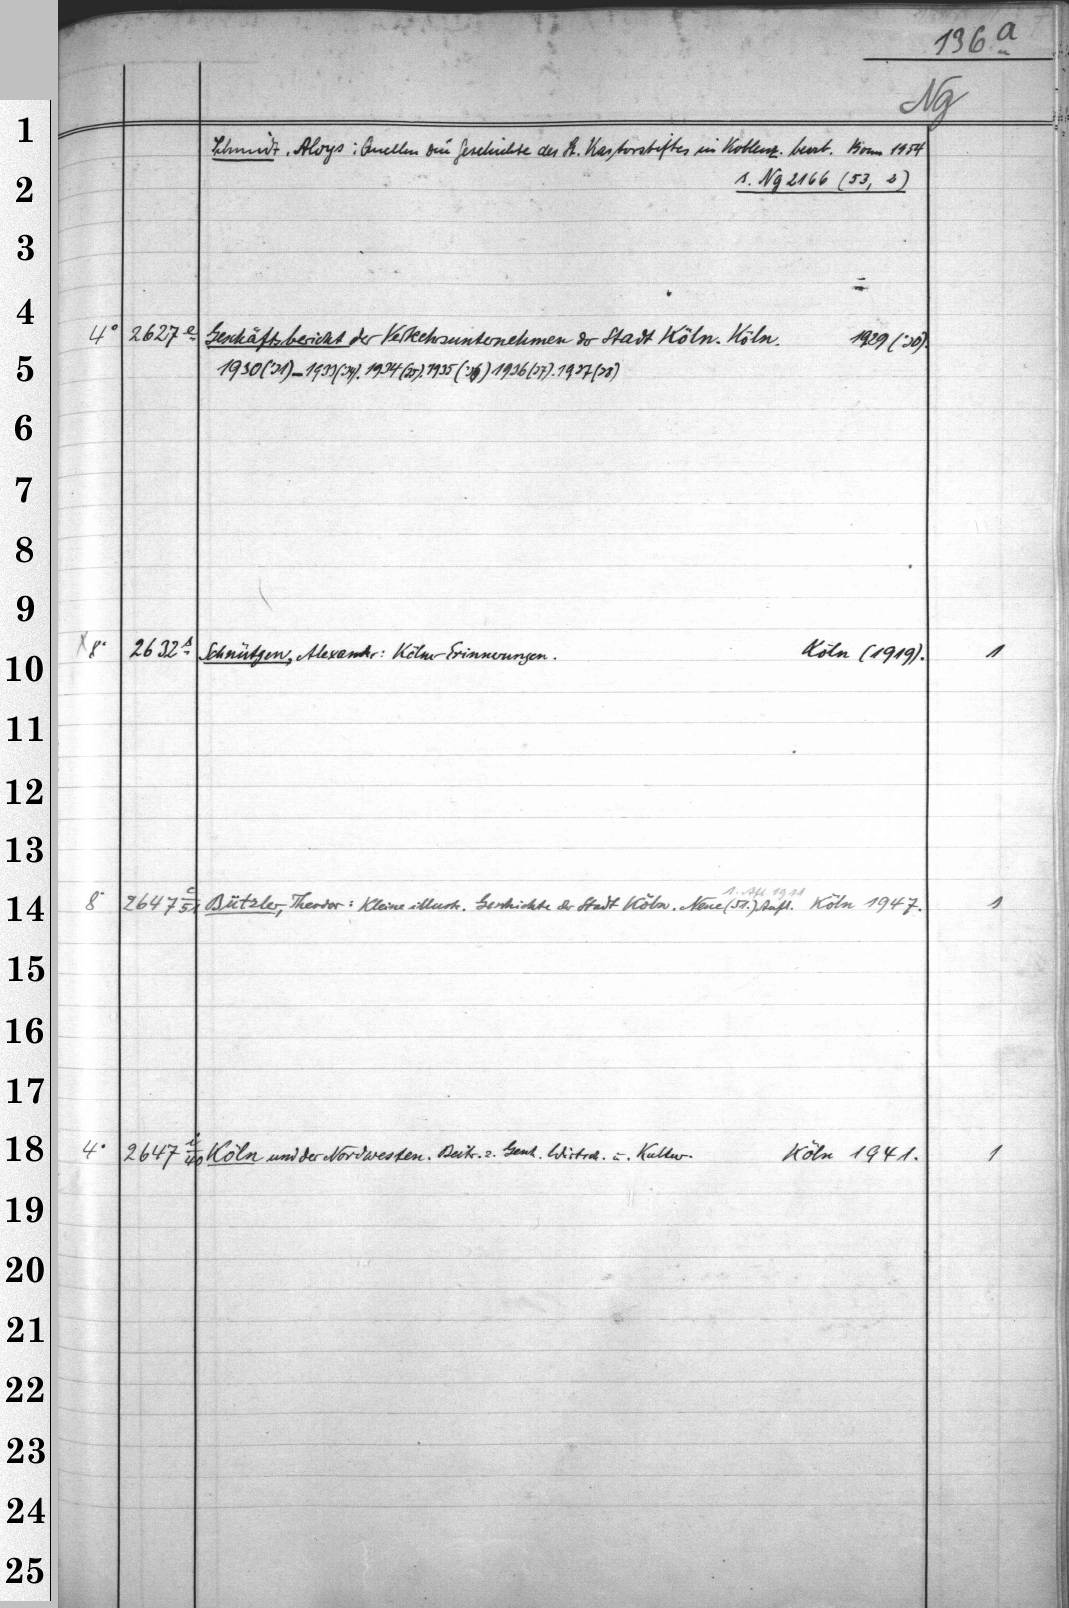 136 a
Ng
Schmidt, Aloys: Quellen zur Geschichte des St. Kastorstiftes in Koblenz. bearb. Bonn 1954
s. Ng 2166 (53, 2)
4° 2627 e Geschäftsbericht der Verkehrsunternehmen der Stadt Köln. Köln. 1929 (30).
1930(31) – 1933(34). 1934(35). 1935(36) 1936(37). 1937(38)
8° 2632 s Schnütgen, Alexander: Kölner Erinnerungen. Köln (1919). 1
1. Afl 1911
8° 2647 c/51 Bützler, Theodor: Kleine illustr. Geschichte der Stadt Köln. Neue (51.) Aufl. Köln 1947. 1
4° 2647 i/40 Köln und der Nordwesten. Beitr. z. Gesch. Wirtsch. u. Kultur. Köln 1941. 1
1
2
3
4
5
6
7
8
9
10
11
12
13
14
15
16
17
18
19
20
21
22
23
24
25